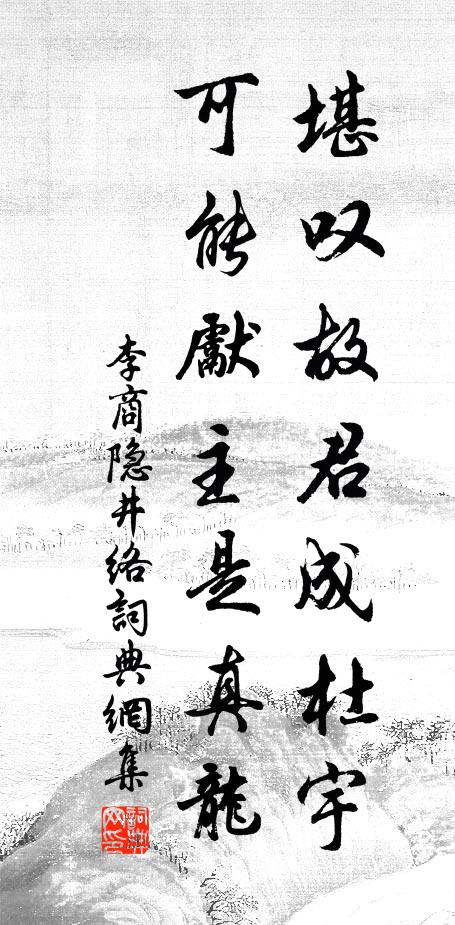 堪叹故君成杜宇
可能獻主是真龍
李商隐井络詞典網集